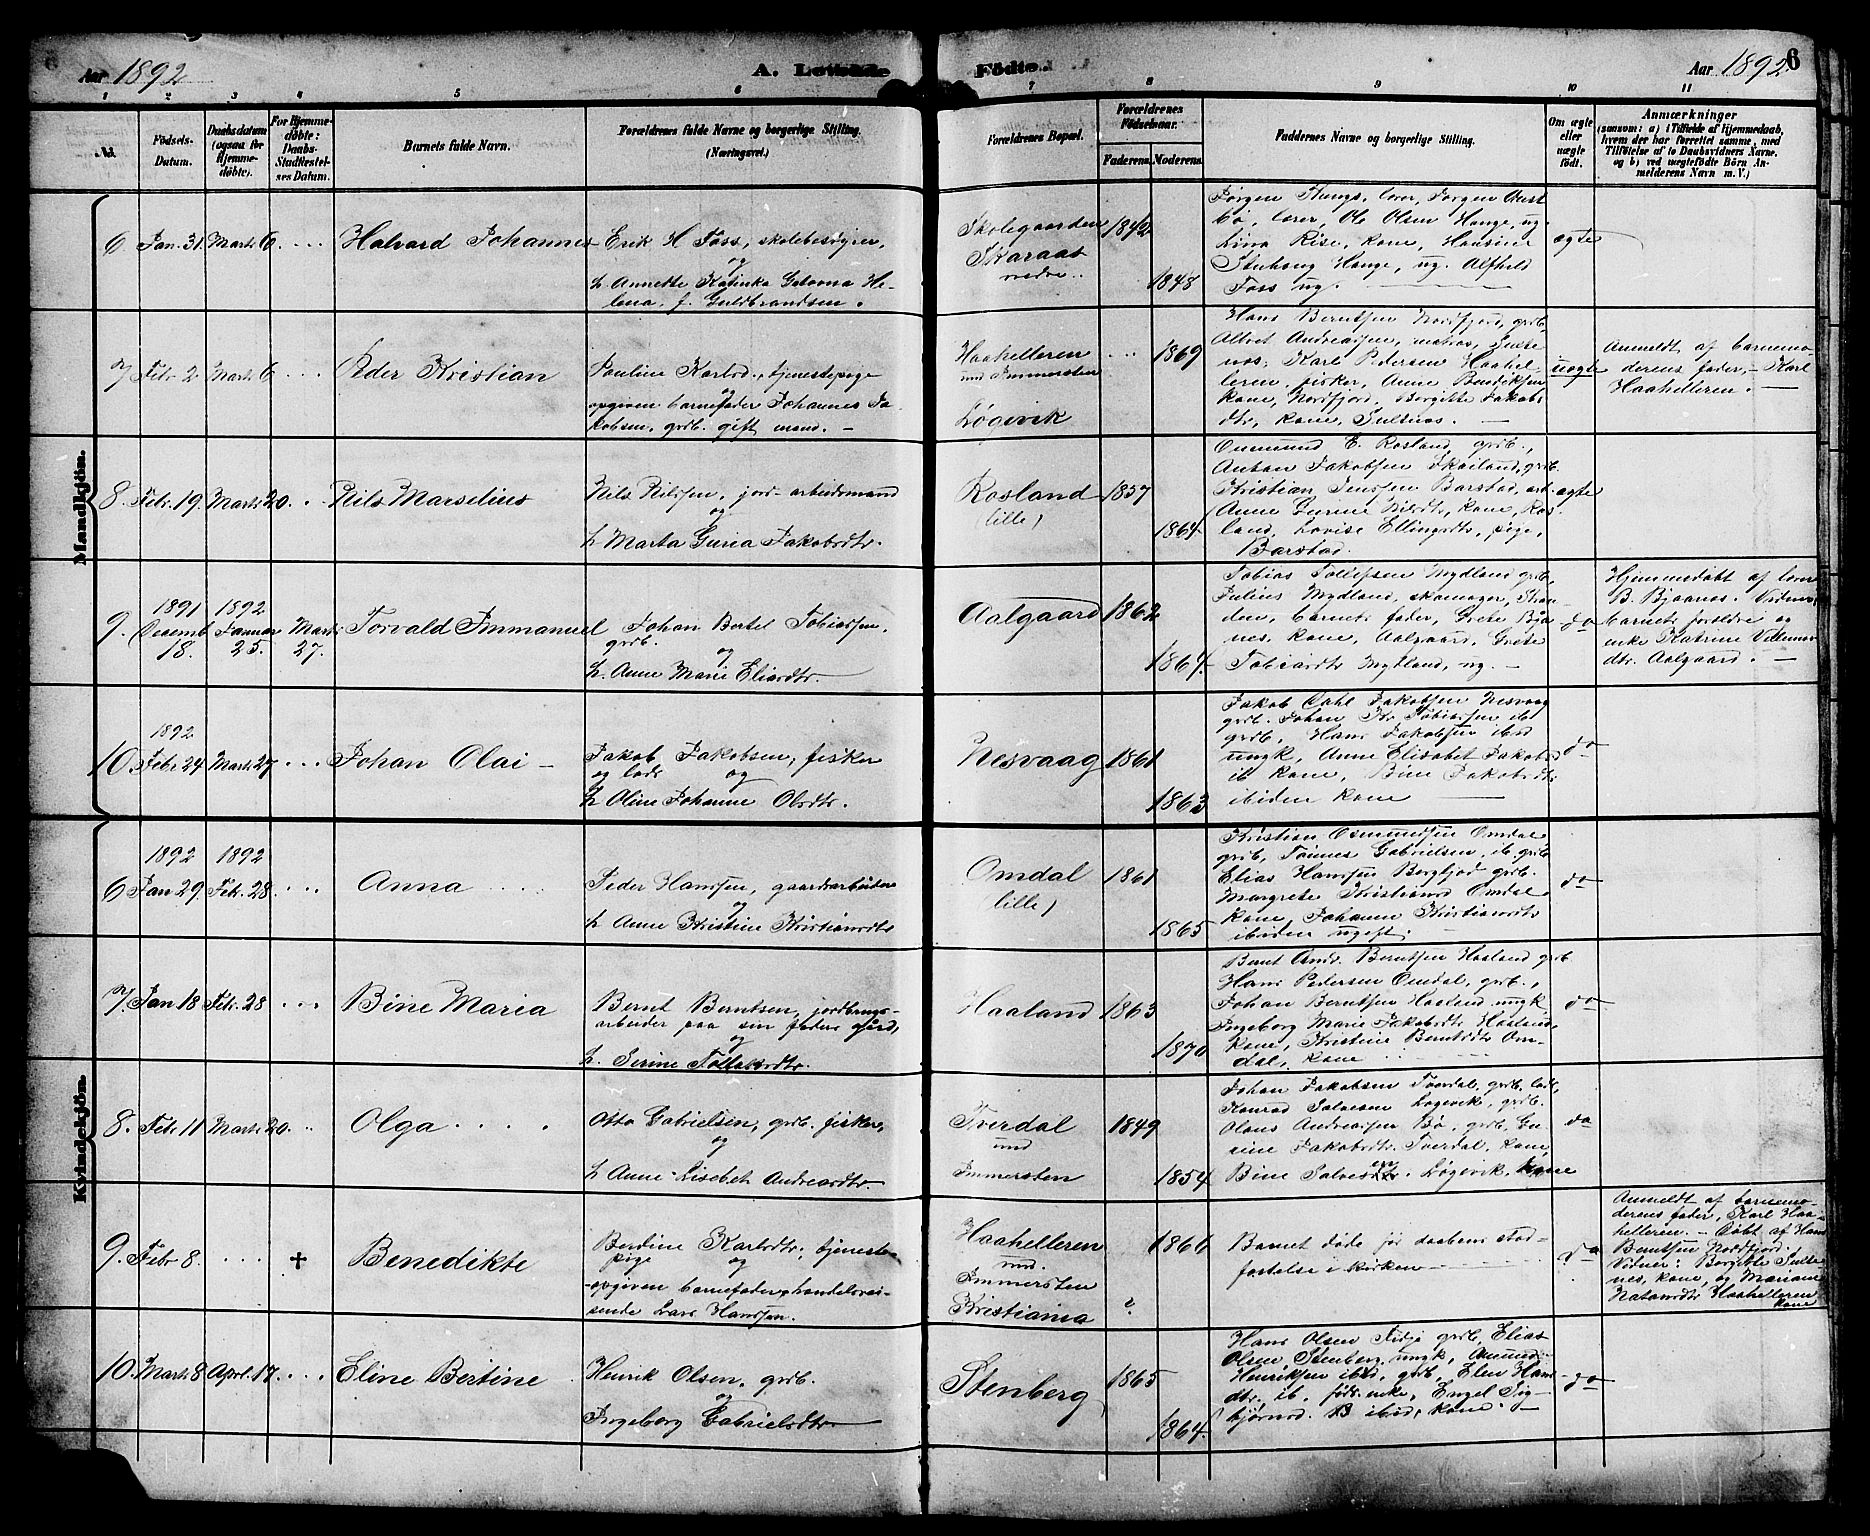 Aar 1892
A. Levende
Fødte.
Aar 1892
6
1 2 3 4 5 6 7 8 9 10 11
No.
Fødsels-
Datum.
Daabsdatum
(ogsaa for
Hjemme-
døbte).
For Hjemme-
døbte:
Daabs-
Stadfæstel-
ses Datum.
Barnets fulde Navn.
Forældrenes fulde Navne og borgerlige Stilling.
(Næringsvei.)
Forældrenes Bopæl.
Forældrenes
Fødselsaar.
Faderens.
Moderens.
Faddernes Navne og borgerlige Stilling.
Om ægte
eller
uægte
født.
Anmærkninger
(saasom: a) i Tilfælde af Hjemmedaab,
hvem der har forrettet samme, med
Tilføielse af to Daabsvidners Navne.
og b) ved uægtefødte Børn An-
melderens Navn m. V.)
Mandkjøn.
6. Jan. 31. Marts 6. Halvard Johannes
Erik H Foss, skolebestyrer,
og
h. Annette Katinka Helena, f. Guldbrandsen.
Skolegaarden
Skaraas
nedre
1842
1848
Jørgen Stangs, lærer, Jørgen
bø, lærer, Ole Olsen Hauge, ug.
Lina Rise, kone,
Hauge, ug. Alfhild
Foss ug.
ægte
7. Febr. 2. Marts 6. Peder Kristian
Pauline Karlsd., tjenestepige
og
opgiven barnefader Johannes Ja-
kobsen, grdb. gift mand. -
Haahelleren
und Immersten
Løgevik
1869
Hans Berntsen Nordfjord, grdb,
Albert Andreassen, matros,
Karl Pedersen Haahel-
leren, fisker, Anne Bendiksen
kone, Nordfjord, Borgitte Jakobs
dtr, kone, -
uægte
Anmeldt af barnemo-
derens fader, - Karl
Haahelleren. -
8. Febr. 19. Marts 20. Nils Marselius
Nils Nilssen, jord-arbeidsmand
og
h Marta Guria Jakobsdtr.
Rosland
(lille)
1857
1864.
Omund E. Rosland grdb.,
Anton Jakobsen Skailand, grdb.
Kristian Jenssen Barstad, arb.
Anne Gurine Nilsdtr, kone, Ros-
land, Lovise Ellingsdtr, pige,
Barstad.
ægte
9. 1891
Decemb.
18.
1892
Januar
25.
Marts
27.
Torvald Immanuel
Johan Bertel Tobiassen,
grdb.
og
h. Anne Marie Eliasdtr.
Aalgaard
1862
1864.
Tobias Tollefsen Mydland grdb,
Julius Mydland, skomager,
barnets fader, Grete Bjå-
nes, kone, Aalgaard, Grete
Tobiasdtr Mydland, ug. -
do
Hjemmedøbt af lærer
B. Bjaanes. Vidner,
barnets forældre og
enke Katrine Villums-
dtr. Aalgaard. -
10. 1892
Febr. 24 Marts 27 Johan Olai -
Jakob Jakobsen, fisker
og lods
og
h Oline Johanne Olsdtr.
Nesvaag
1861
1863
Jakob Dahl Jakobsen Nesvaag
grdb. Johan Kr Tobiassen ib
grdb, Hans Jakobsen ibid
ungk, Anne Elisabet Jakobsd
ib kone, Bine Jakobsdtr
ibiden kone
do
Kvindekjøn.
6. 1892
Jan 29.
1892
Feb. 28.
Anna
Peder Hanssen, gaardarbeider
og
h Anne Kristine Kristiansdtr
Omdal
(lille)
1861
1865
Kristian Osmundsen Omdal
grdb, Tønnes Gabrielsen, ib grdb
Elias Hanssen Bergfjord grdb.
Margrete Kristiansd Omdal
kone, Johanne Kristiansdtr
ibiden ugift.
do
7. Jan 18 Feb. 28 Bine Maria
Bernt Berntsen, jordbrugs-
arbeider paa sin faders gård,
og
h. Serine Tollaksdtr.
Haaland
1863
1870
Bernt Andr. Berntsen Haaland grdb
Hans Pedersen Omdal, grdb.,
Johan Berntsen Haaland ungk,
Ingeborg Marie Jakobsdtr Haaland,
kone, Kristine Berntsdtr Om-
dal, kone
do
8. Feb. 11 Marts 20. Olga
Otto Gabrielsen, grdb. fisker,
og
h Anne-Lisebet Andreasdtr.
Tverdal
und
Immersten
1849
1854
Johan Jakobsen Tverdal, grdb, lods,
Konrad Salvesen Løgevik, grdb.
Olaus Andreassen Bø, grdb, Gu-
rine Jakobsdtr. Tverdal, kone,
Bine Salvesen. Løgevik, kone
do
9. Febr 8. + Benedikte
Berdine Karlsdtr, tjeneste-
pige og
opgiven barnefader, handelsrei-
sende Lars Hanssen.
Haahelleren
und.
Immersten
Kristiania
1866
?
Barnet døde før daabens stad-
fæstelse i kirken
do
Anmeldt af barnemo-
derens fader, Karl Haa-
helleren. - Døbt af Hans
Berntsen Nordfjord.
Vidner: Borgitte
kone, og Mariane
Natansdtr Haahelleren
kone
10. Marts 8 April 17. Eline Bertine
Henrik Olsen, grdb.
og
Ingeborg Gabrielsdtr
Stenberg
1865
1864.
Hans Olsen grdb, Elias
Olsen, Stenberg, ungk,
Henriksen ibid, grdb, Elen Hans
dtr. ib, føds. enke, Engel Sig-
bjørnsd. B ibid, kone. -
do